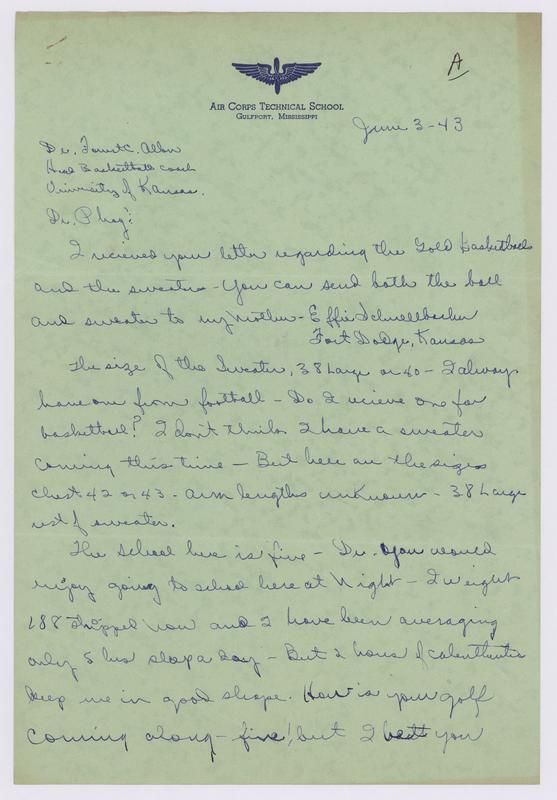 A
AIR CORPS TECHNICAL SCHOOL
GULFPORT, MISSISSIPPI
June 3-43
Dr. Forrest C. Allen
Head Basketball coach
University of Kansas.
Dr. Phog:
I recieved your letter regarding the Gold Basketballs
and the sweaters - You can send both the ball
and sweater to my Mother - Effie Schnellbacher
Fort Dodge, Kansas
The size of the Sweater, 38 Large or 40 - I always
have one from football - Do I recieve one for
basketball? I don't think I have a sweater
coming this time - But here are the sizes
chest 42 or 43 - arm lengths unknown - 38 Large
of sweater.
The school here is fine - Dr. you would
enjoy going to school here at Night - I weight
188 stripped now and I have been averaging
only 5 hrs sleep a day - But 2 hours of calenthentics
keep me in good shape. How is your golf
coming along - fine! but I bett you